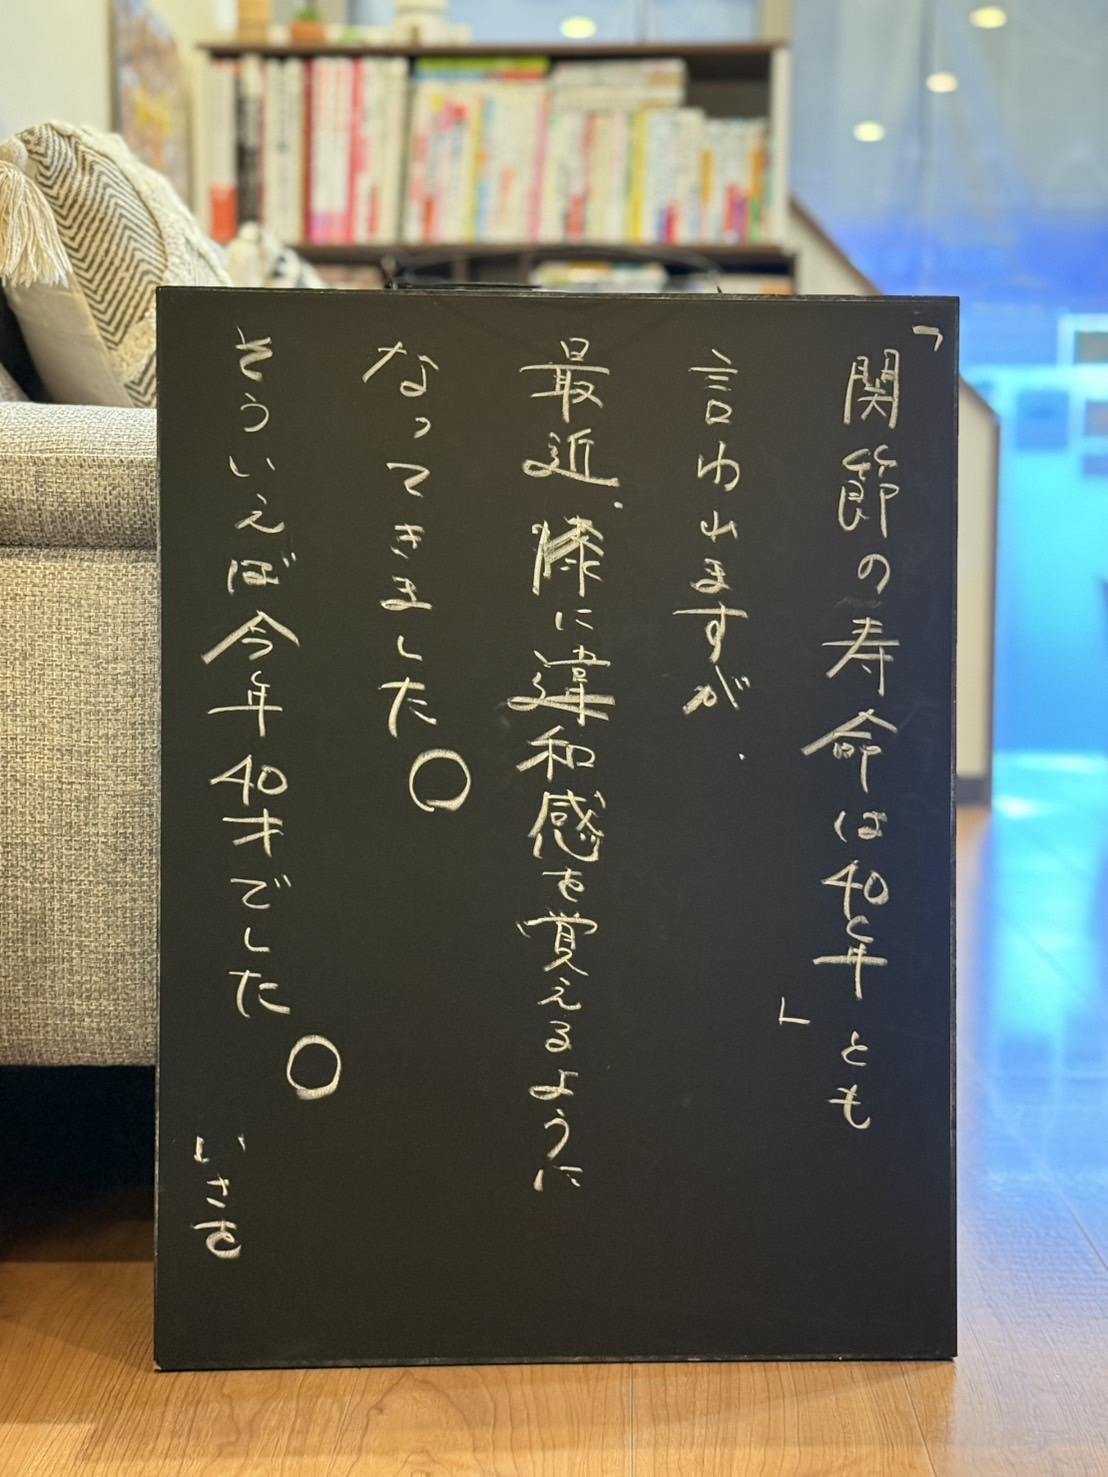 「関節の寿命は40年」とも
言われますが、
最近、膝に違和感を覚えるように
なってきました。
そういえば今年40才でした。
いさを